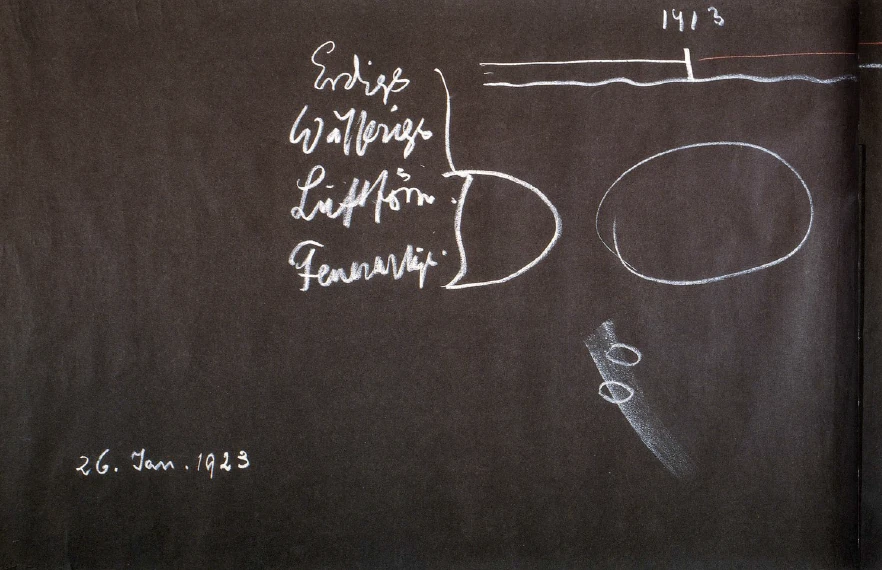 1913
Erdige
Wässerige
Luftförm.
Feuerartig.
26. Jan. 1923